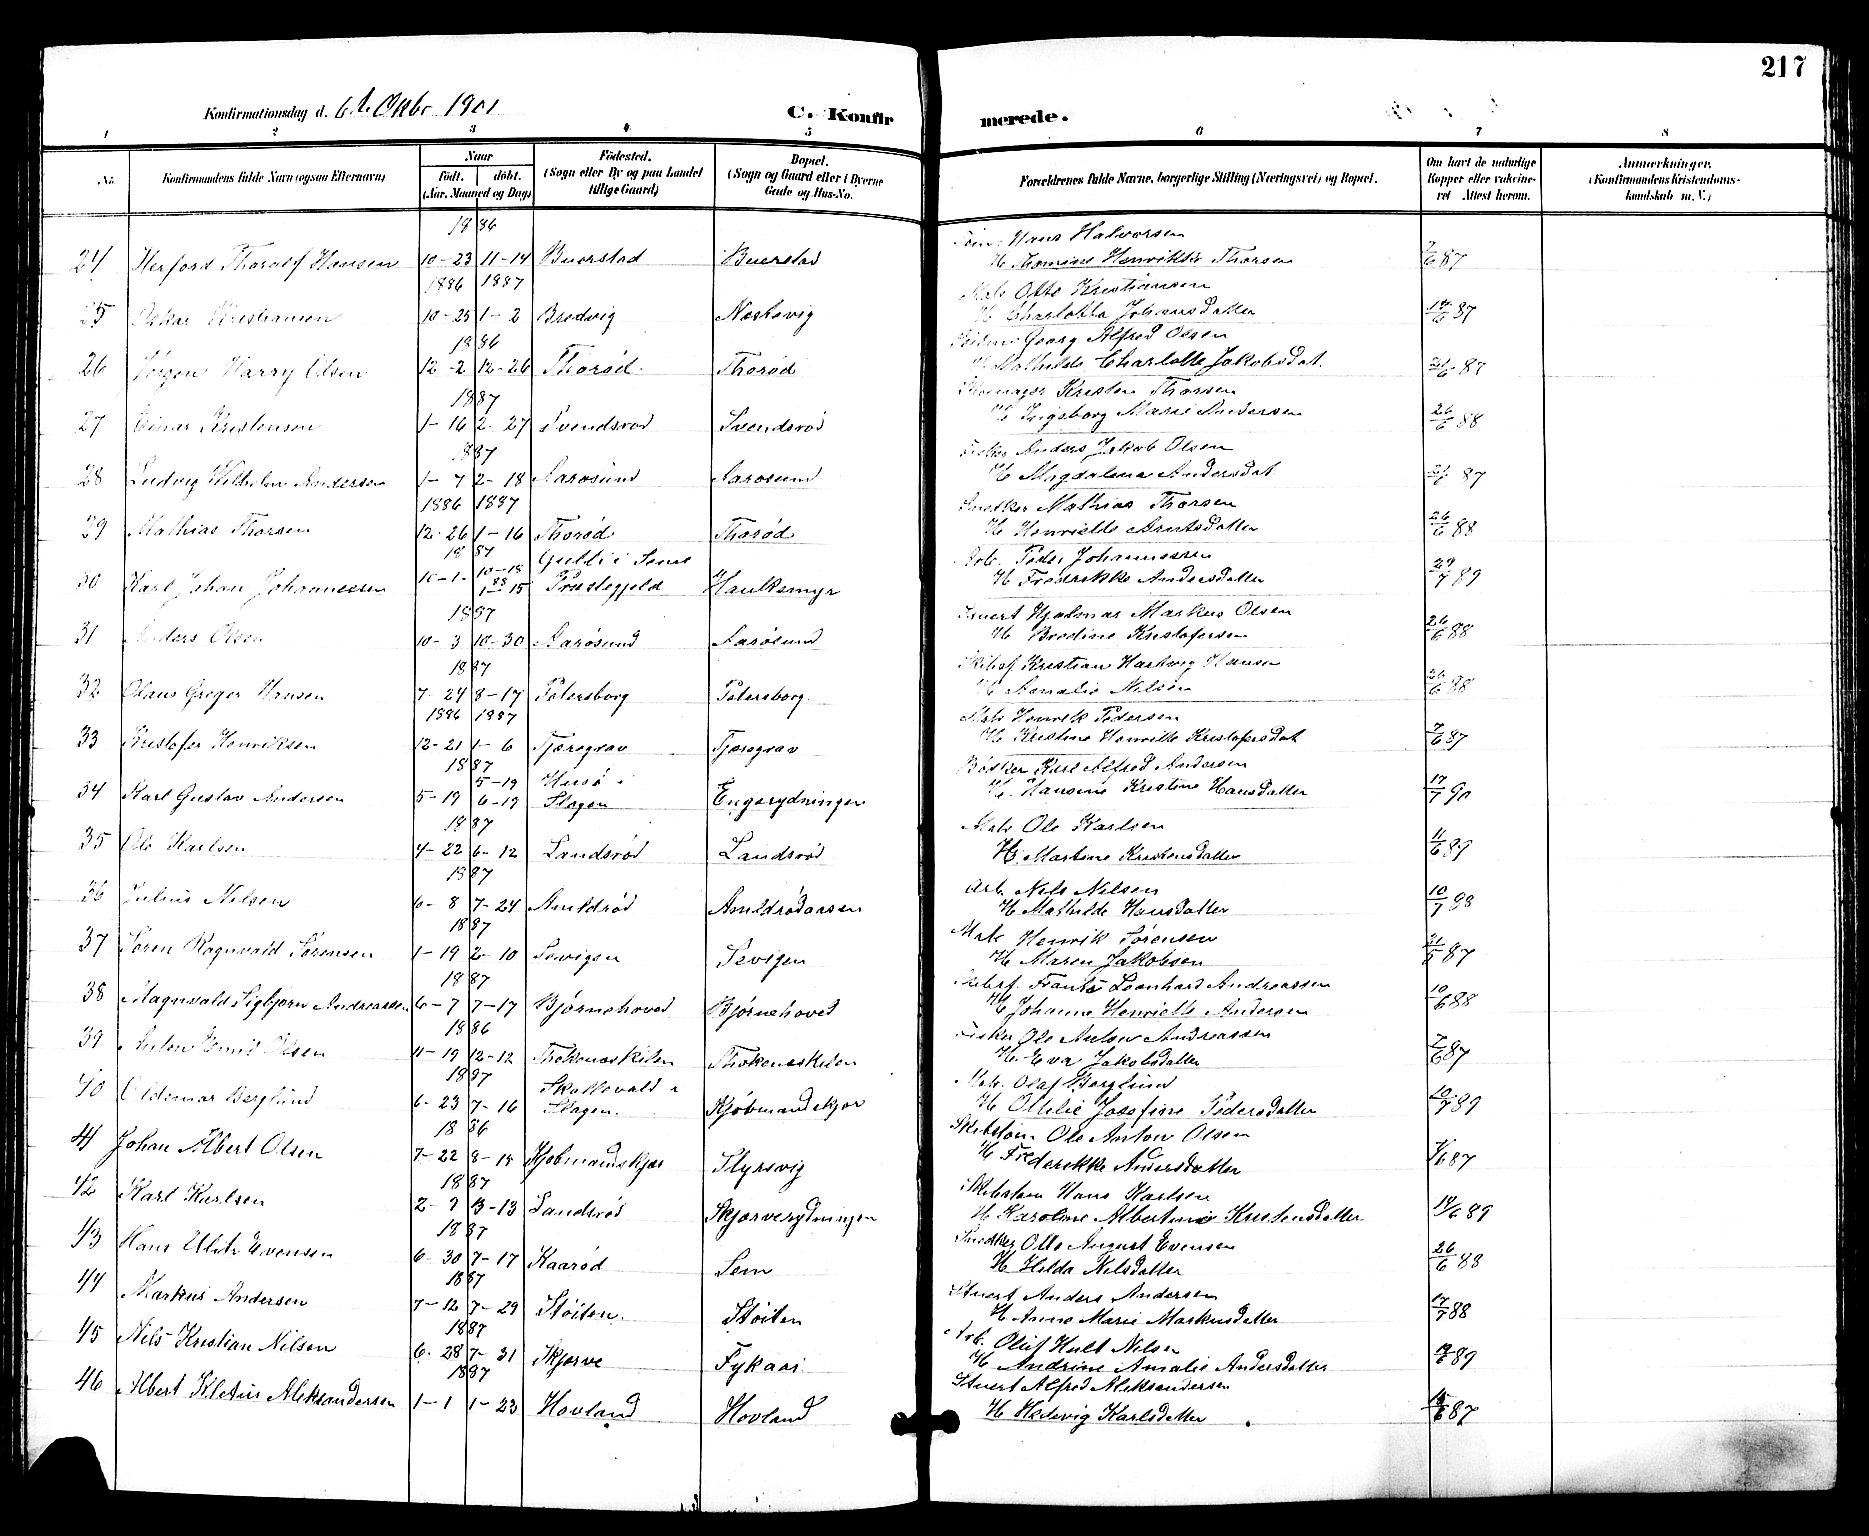 217
Konfirmationsdag d. 6te Oktbr 1901
C. Konfirmerede.
1 2 3 4 5 6 7 8
No. Konfirmandens fulde Navn (ogsaa Efternavn) Naar født. døbt. (Aar, Maaned og Dag) Fødested. (Sogn eller By og paa Landet tillige Gaard) Bopæl. (Sogn og Gaard eller i Byerne Gade og Hus-No. Forældrenes fulde Navne, borgerlige Stilling (Næringsvei) og Bopæl. Om havt de naturlige Kopper eller vaccineret Attest herom. Anmærkninger. (Konfirmandens Kristendomskundskab m. V.)
1886 Hans Halvorsen
24 Herford Thoralf Hansen 10-23 11-14 Buerstad Buerstad H. Thomine Henriks Thorsen 7/6 87
1886 1887 Matr. Otto Kristiansen
25 Oskar Kristiansen 10-25 1-2 Bredvig Nestevig H. Charlotte Johansdatter 14/6 87
1886 Georg Alfred Olsen
26 Jørgen Harry Olsen 12-2 12-26 Thorød Thorød H. Mathilde Charlotte Jakobsdat. 21/6 87
1887 Kristen Thorsen
27 Einar Kristensen 1-16 2-27 Svendsrød Svendsrød H. Ingeborg Marie Andersen 26/6 88
1887 Fisker Anders Jakob Olsen
28 Ludvig Vilhelm Andersen 1-7 2-18 Aarøsund Aarosund H. Magdalena Andersdat 21/6 87
1886 1887 Snedker Mathias Thorsen
29 Mathias Thorsen 12-26 1-16 Thorød Thorød H. Henriette Arntsdatter 26/6 88
1887 Gulli i Sems Arb. Peder Johannessen
30 Karl Johan Johannessen 10-1- 10-18 88 1-15 Præstegjeld Haukemyr H. Fredrikke Andersdatter 29/7 89
1887 Stuert Hjalmar Markus Olsen
31 Anders Olsen 10-3 10-30 Aarøsund Aarøsund H. Bredine Kristofersen 26/6 88
1887 Skibsf. Kristian Hartvig Hansen
32 Olaus Greger Hansen 7-24 8-17 Petersborg Petersborg H. Amalie Nilsen 26/6 88
1886 1887 Matr. Henrik Pedersen
33 Kristofer Henriksen 12-21 1-6 Tjæregrav Tjæregrav H. Kristine Henriette Kristofersdat 7/6 87
1887 Bødker Karl Alfred Andersen
34 Karl Gustav Andersen 5-19 5-19 6-19 Husø i Slagen Engerydningen H. Hansine Kristine Hansdatter 17/7 90
1887 Matr Ole Karlsen
35 Ole Karlsen 4-22 6-12 Landsrød Landsrød H. Martine Kristensdatter 11/6 89
1887 Arb. Nils Nilsen
36 Julius Nilsen 6-8 7-24 Amldrød Amldrødaasen H Mathilde Hansdatter 10/7 88
1887 Matr Henrik Sørensen
37 Søren Ragnvald Sørensen 1-19 2-10 Sevigen Sevigen H Maren Jakobsen 21/6 87
1887 Skibsf. Frants Leonhard Andreassen
38 Magnvald Sigbjørn Andreassen 6-7 7-17 Bjørnehoved Bjørnehovet H Johanne Henriette Andersen 10/6 88
1886 Fisker Ole Anton Andreassen
39 Anton Emil Olsen 11-19 12-12 Thokeneskilen Thokeneskilen H. Eva Jakobsdatter 7/6 87
1887 Skallevald i Matr. Olaf Berglund
40 Oldemar Berglund 6-23 7-16 Slagen. Kjøbmandskjær H. Ottilie Josefine Pedersdatter 10/7 89
1886 Skibstøm. Ole Anton Olsen
41 Johan Albert Olsen 7-22 8-18 Kjøbmandskjær Styrsvig H Frederikke Andersdatter 7/6 87
1887 Skibstøm Hans Karlsen
42 Karl Karlsen 2-7 3-13 Landsrød Skjærverydningen H Karoline Albertine Kristensdatter 14/6 89
1887 Snedker Otto August Evensen
43 Hans Ulrik Evensen 6-30 7-17 Kaarød Sem H Hilda Nilsdatter 26/6 88
1887 Stuert Anders Andersen
44 Markus Andersen 7-12 7-29 Støiten. Støiten H Anne Marie Markusdatter 17/7 88
1887 Arb. Olif Hult Nilsen
45 Nils Kristian Nilsen 6-28 7-31 Skjærve Fykaas H Andrine Amalie Andersdatter 89
1887 Stuert Alfred Aleksandersen
46 Albert Kletus Aleksandersen 1-1 1-23 Hovland Hovland H Hedevig Karlsdatter 87